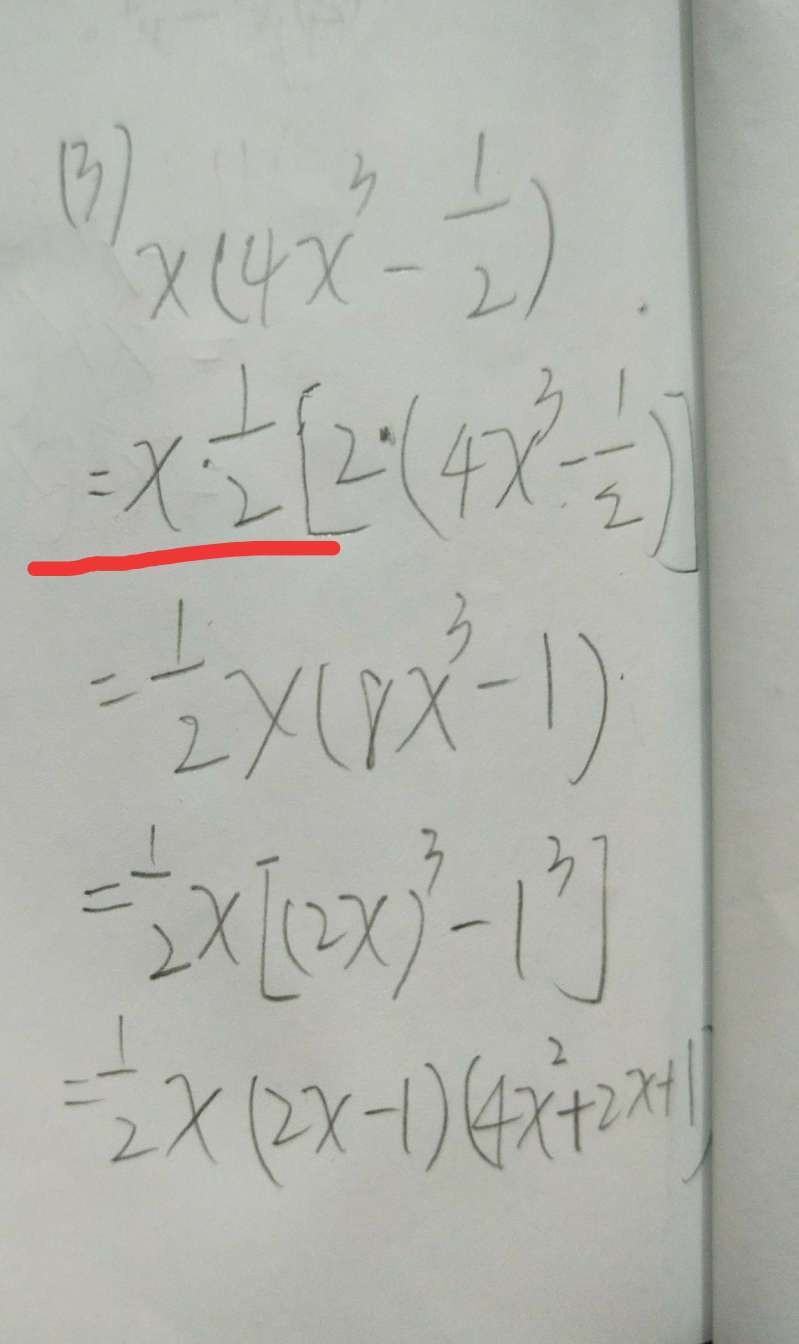 (3) x(4x³ - 1/2)
= x · 1/2 [2 · (4x³ - 1/2)]
= 1/2 x(8x³ - 1)
= 1/2 x[(2x)³ - 1³]
= 1/2 x(2x - 1)(4x² + 2x + 1)